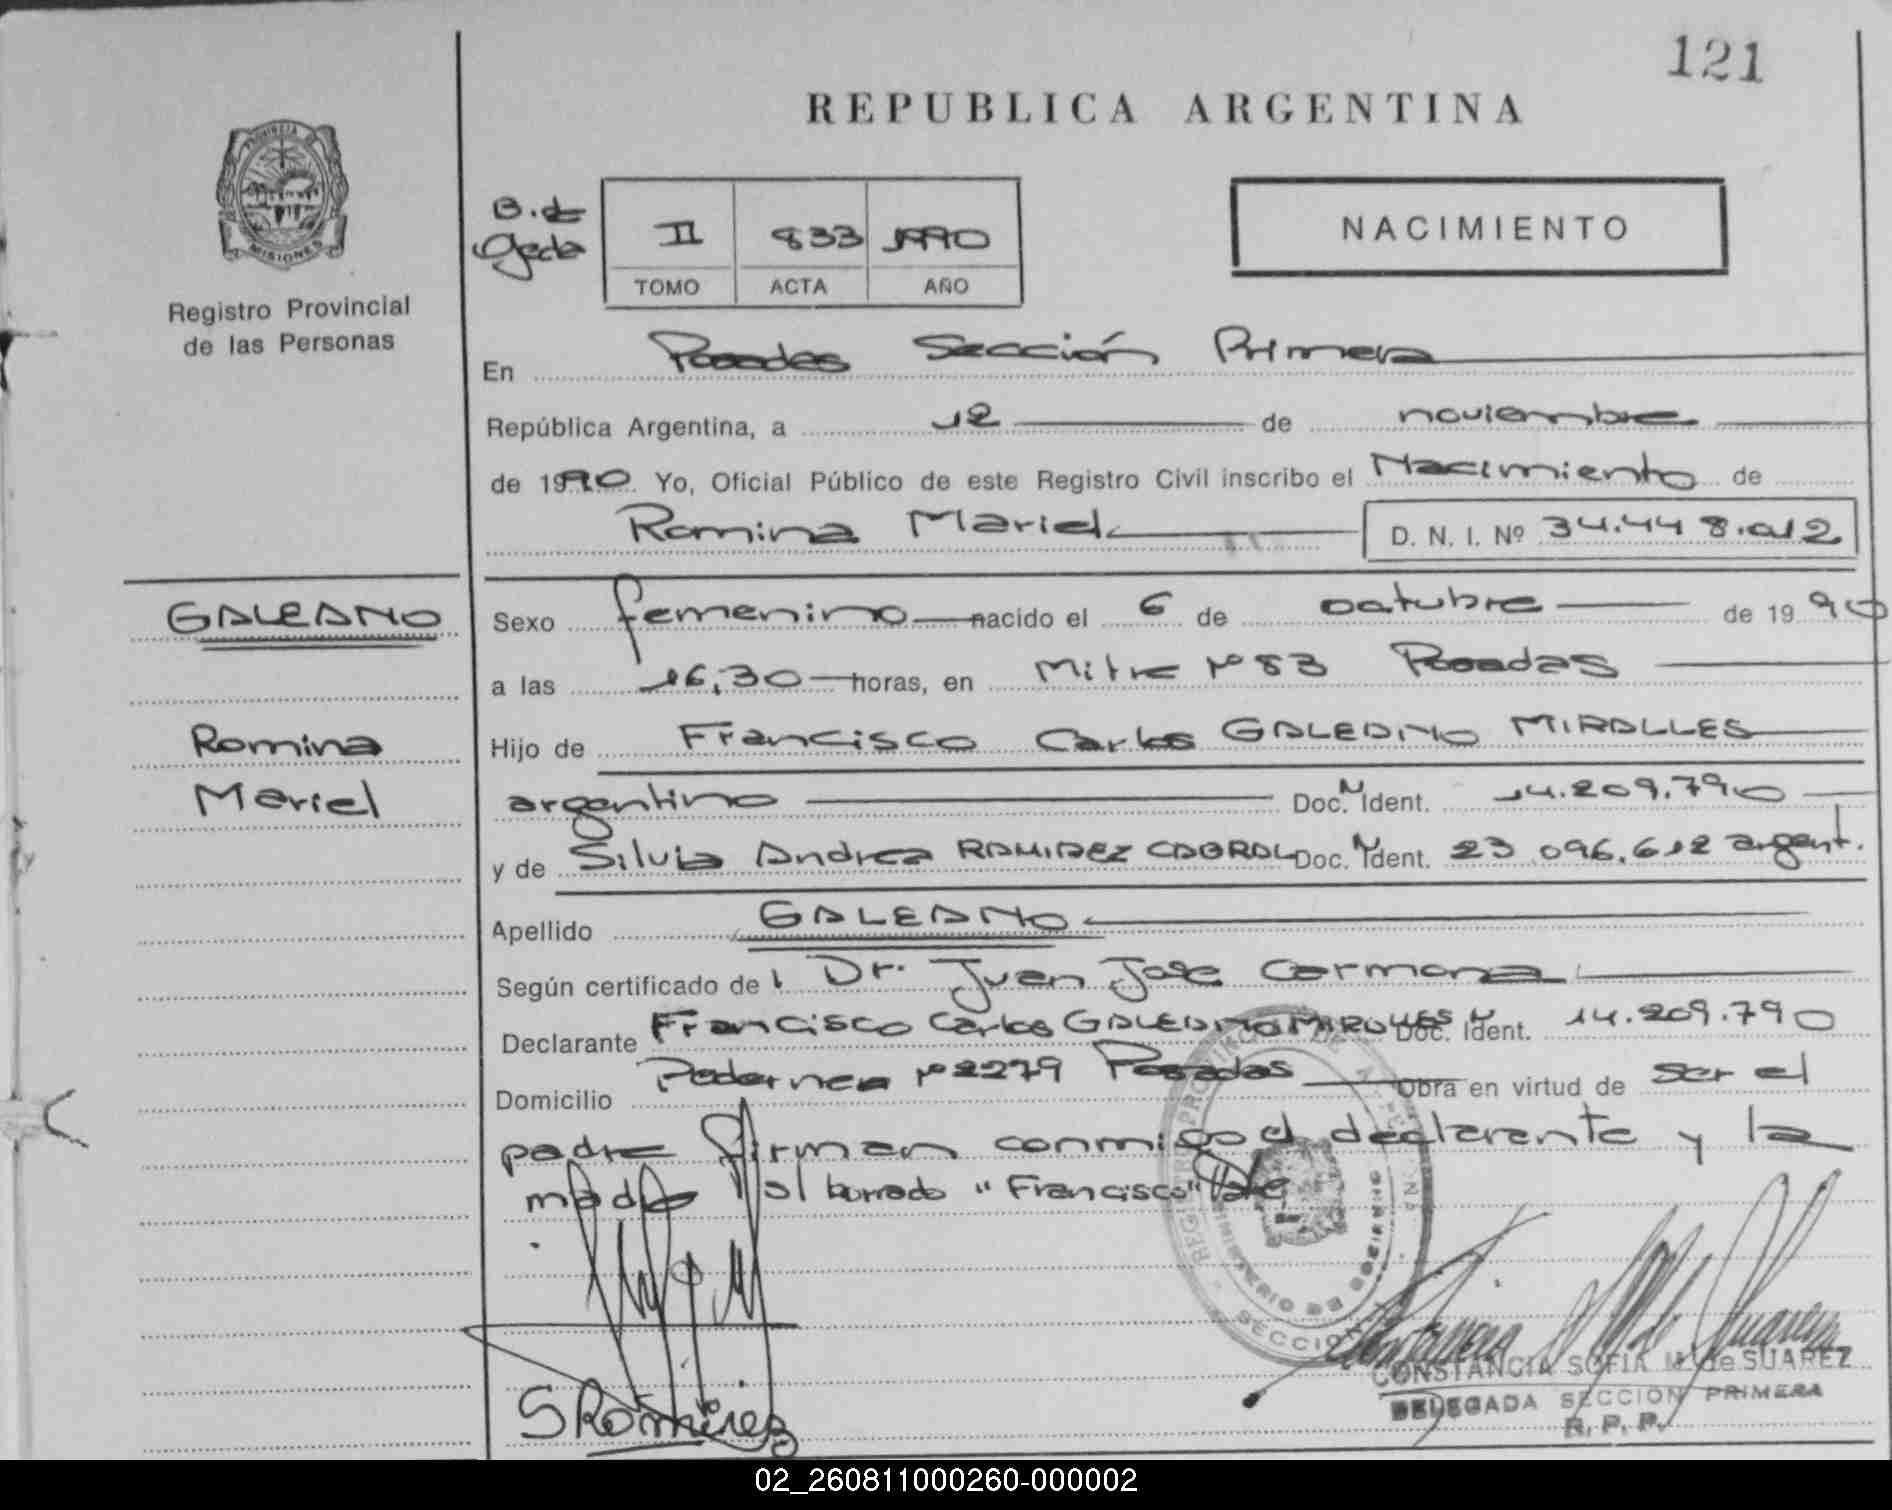 121
REPUBLICA ARGENTINA
PROVINCIA DE
MISIONES
Registro Provincial
de las Personas
B. de
Geda
II 833 1990
TOMO ACTA AÑO
NACIMIENTO
En Posadas Sección Primera
República Argentina, a 12 de noviembre
de 1990 Yo, Oficial Público de este Registro Civil inscribo el Nacimiento de
Romina Mariel D. N. I. Nº 34.448.012
GALEANO
Romina
Mariel
Sexo femenino nacido el 6 de octubre de 1990
a las 16,30 horas, en Mitre Nº 83 Posadas
Hijo de Francisco Carlos GALEANO MIRALLES
argentino Doc. N Ident. 14.209.790
y de Silvia Andrea RAMIREZ CABRAL Doc. N Ident. 23.096.612 argent.
Apellido GALEANO
Según certificado del Dr. Juan Jose Carmona
Declarante Francisco Carlos GALEANO MIRALLES Doc. N Ident. 14.209.790
Domicilio Pedernera Nº 2279 Posadas Obra en virtud de ser el
padre firman conmigo el declarante y la
madre s/ borrado "Francisco" Vale
SRamirez
CONSTANCIA SOFIA M. de SUAREZ
DELEGADA SECCION PRIMERA
R. P. P.
02_260811000260-000002